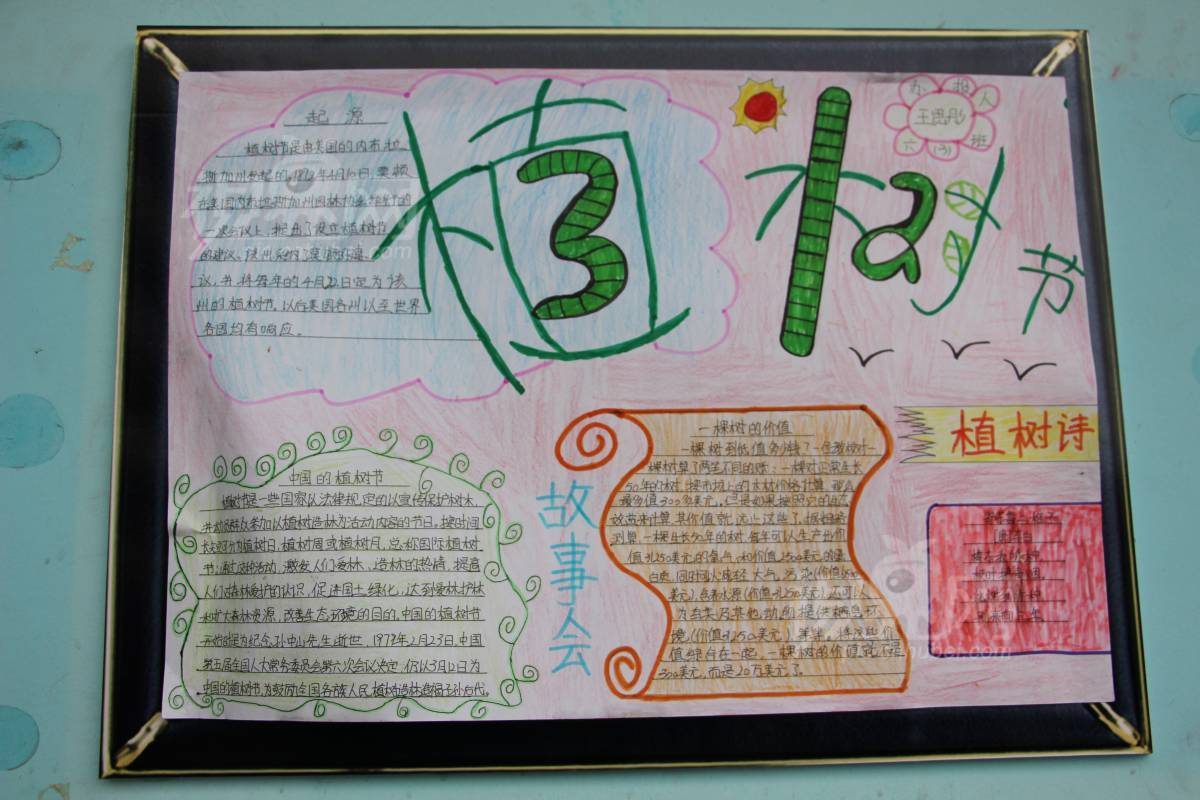 起源
植树节是由美国的内布拉
斯加州发起的。1872年4月10日,莫顿
在美国内布拉斯加州园林协会举行的
一次会议上,提出了设立植树节
的建议。
议,并将每年的4月22日定为该
州的植树节。以后美国各州以至世界
各国均有响应。
植树节
3 12
办报人
王思彤
六(3)班
植树诗
中国的植树节
植树节是一些国家以法律规定的以宣传保护树木,
并动员群众参加以植树造林为活动内容的节日。按时间
长短可分为植树日、植树周或植树月,总称国际植树
节。通过这种活动,激发人们爱林、造林的热情,提高
人们对森林爱护的认识,促进国土绿化,达到爱林护林
和扩大森林资源、改善生态环境的目的。中国的植树节
开始时是为纪念孙中山先生逝世。1979年2月23日,中国
第五届全国人大常务委员会第六次会议决定,仍以3月12日为
中国的植树节,为鼓励全国各族人民植树造林造福子孙后代。
故事会
一棵树的价值
一棵树到底值多少钱?
一棵树算了两笔不同的账:一棵正常生长
50年的树,按市场上的木材价格计算,
最多值300多美元,但是如果按照它的生态
效益来计算,其价值就远不止这些了。据粗略
测算,一棵生长50年的树,每年可以生产出价
值31250美元的氧气和价值2500美元的蛋
白质,同时可以减轻大气污染(价值62500
美元),涵养水源(价值31250美元),还可以
为鸟类及其他动物提供栖息环
境(价值31250美元)等等。将这些价
值综合在一起,一棵树的价值就不是
300美元,而是20万美元了。